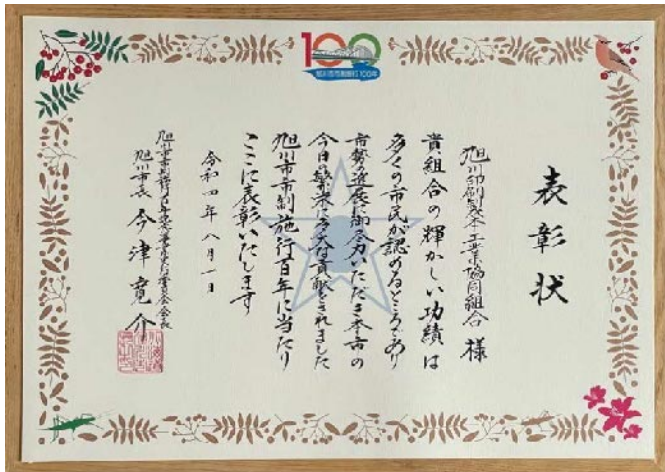 100
旭川市市制施行100年
表彰状
旭川印刷製本工業協同組合 様
貴組合の輝かしい功績は
多くの市民が認めるところであり
市勢の進展に御尽力いただき本市の
今日の繁栄に多大な貢献をされました
旭川市市制施行百年に当たり
ここに表彰いたします
令和四年八月一日
旭川市長 今津寛介